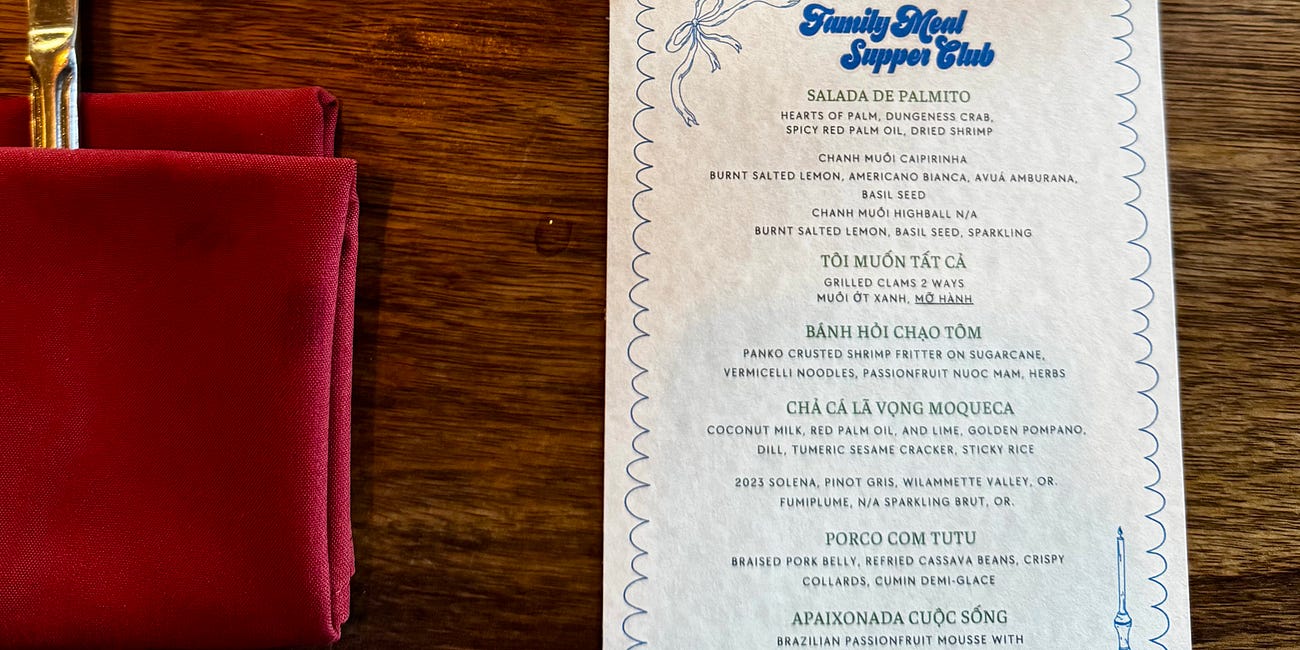 Family Meal
Supper Club
SALADA DE PALMITO
HEARTS OF PALM, DUNGENESS CRAB,
SPICY RED PALM OIL, DRIED SHRIMP
CHANH MUỐI CAIPIRINHA
BURNT SALTED LEMON, AMERICANO BIANCA, AVUÁ AMBURANA,
BASIL SEED
CHANH MUỐI HIGHBALL N/A
BURNT SALTED LEMON, BASIL SEED, SPARKLING
TÔI MUỐN TẤT CẢ
GRILLED CLAMS 2 WAYS
MUỐI ỚT XANH, MỠ HÀNH
BÁNH HỎI CHẠO TÔM
PANKO CRUSTED SHRIMP FRITTER ON SUGARCANE,
VERMICELLI NOODLES, PASSIONFRUIT NUOC MAM, HERBS
CHẢ CÁ LÃ VỌNG MOQUECA
COCONUT MILK, RED PALM OIL, AND LIME, GOLDEN POMPANO,
DILL, TUMERIC SESAME CRACKER, STICKY RICE
2023 SOLENA, PINOT GRIS, WILAMMETTE VALLEY, OR.
FUMIPLUME, N/A SPARKLING BRUT, OR.
PORCO COM TUTU
BRAISED PORK BELLY, REFRIED CASSAVA BEANS, CRISPY
COLLARDS, CUMIN DEMI-GLACE
APAIXONADA CUỘC SỐNG
BRAZILIAN PASSIONFRUIT MOUSSE WITH